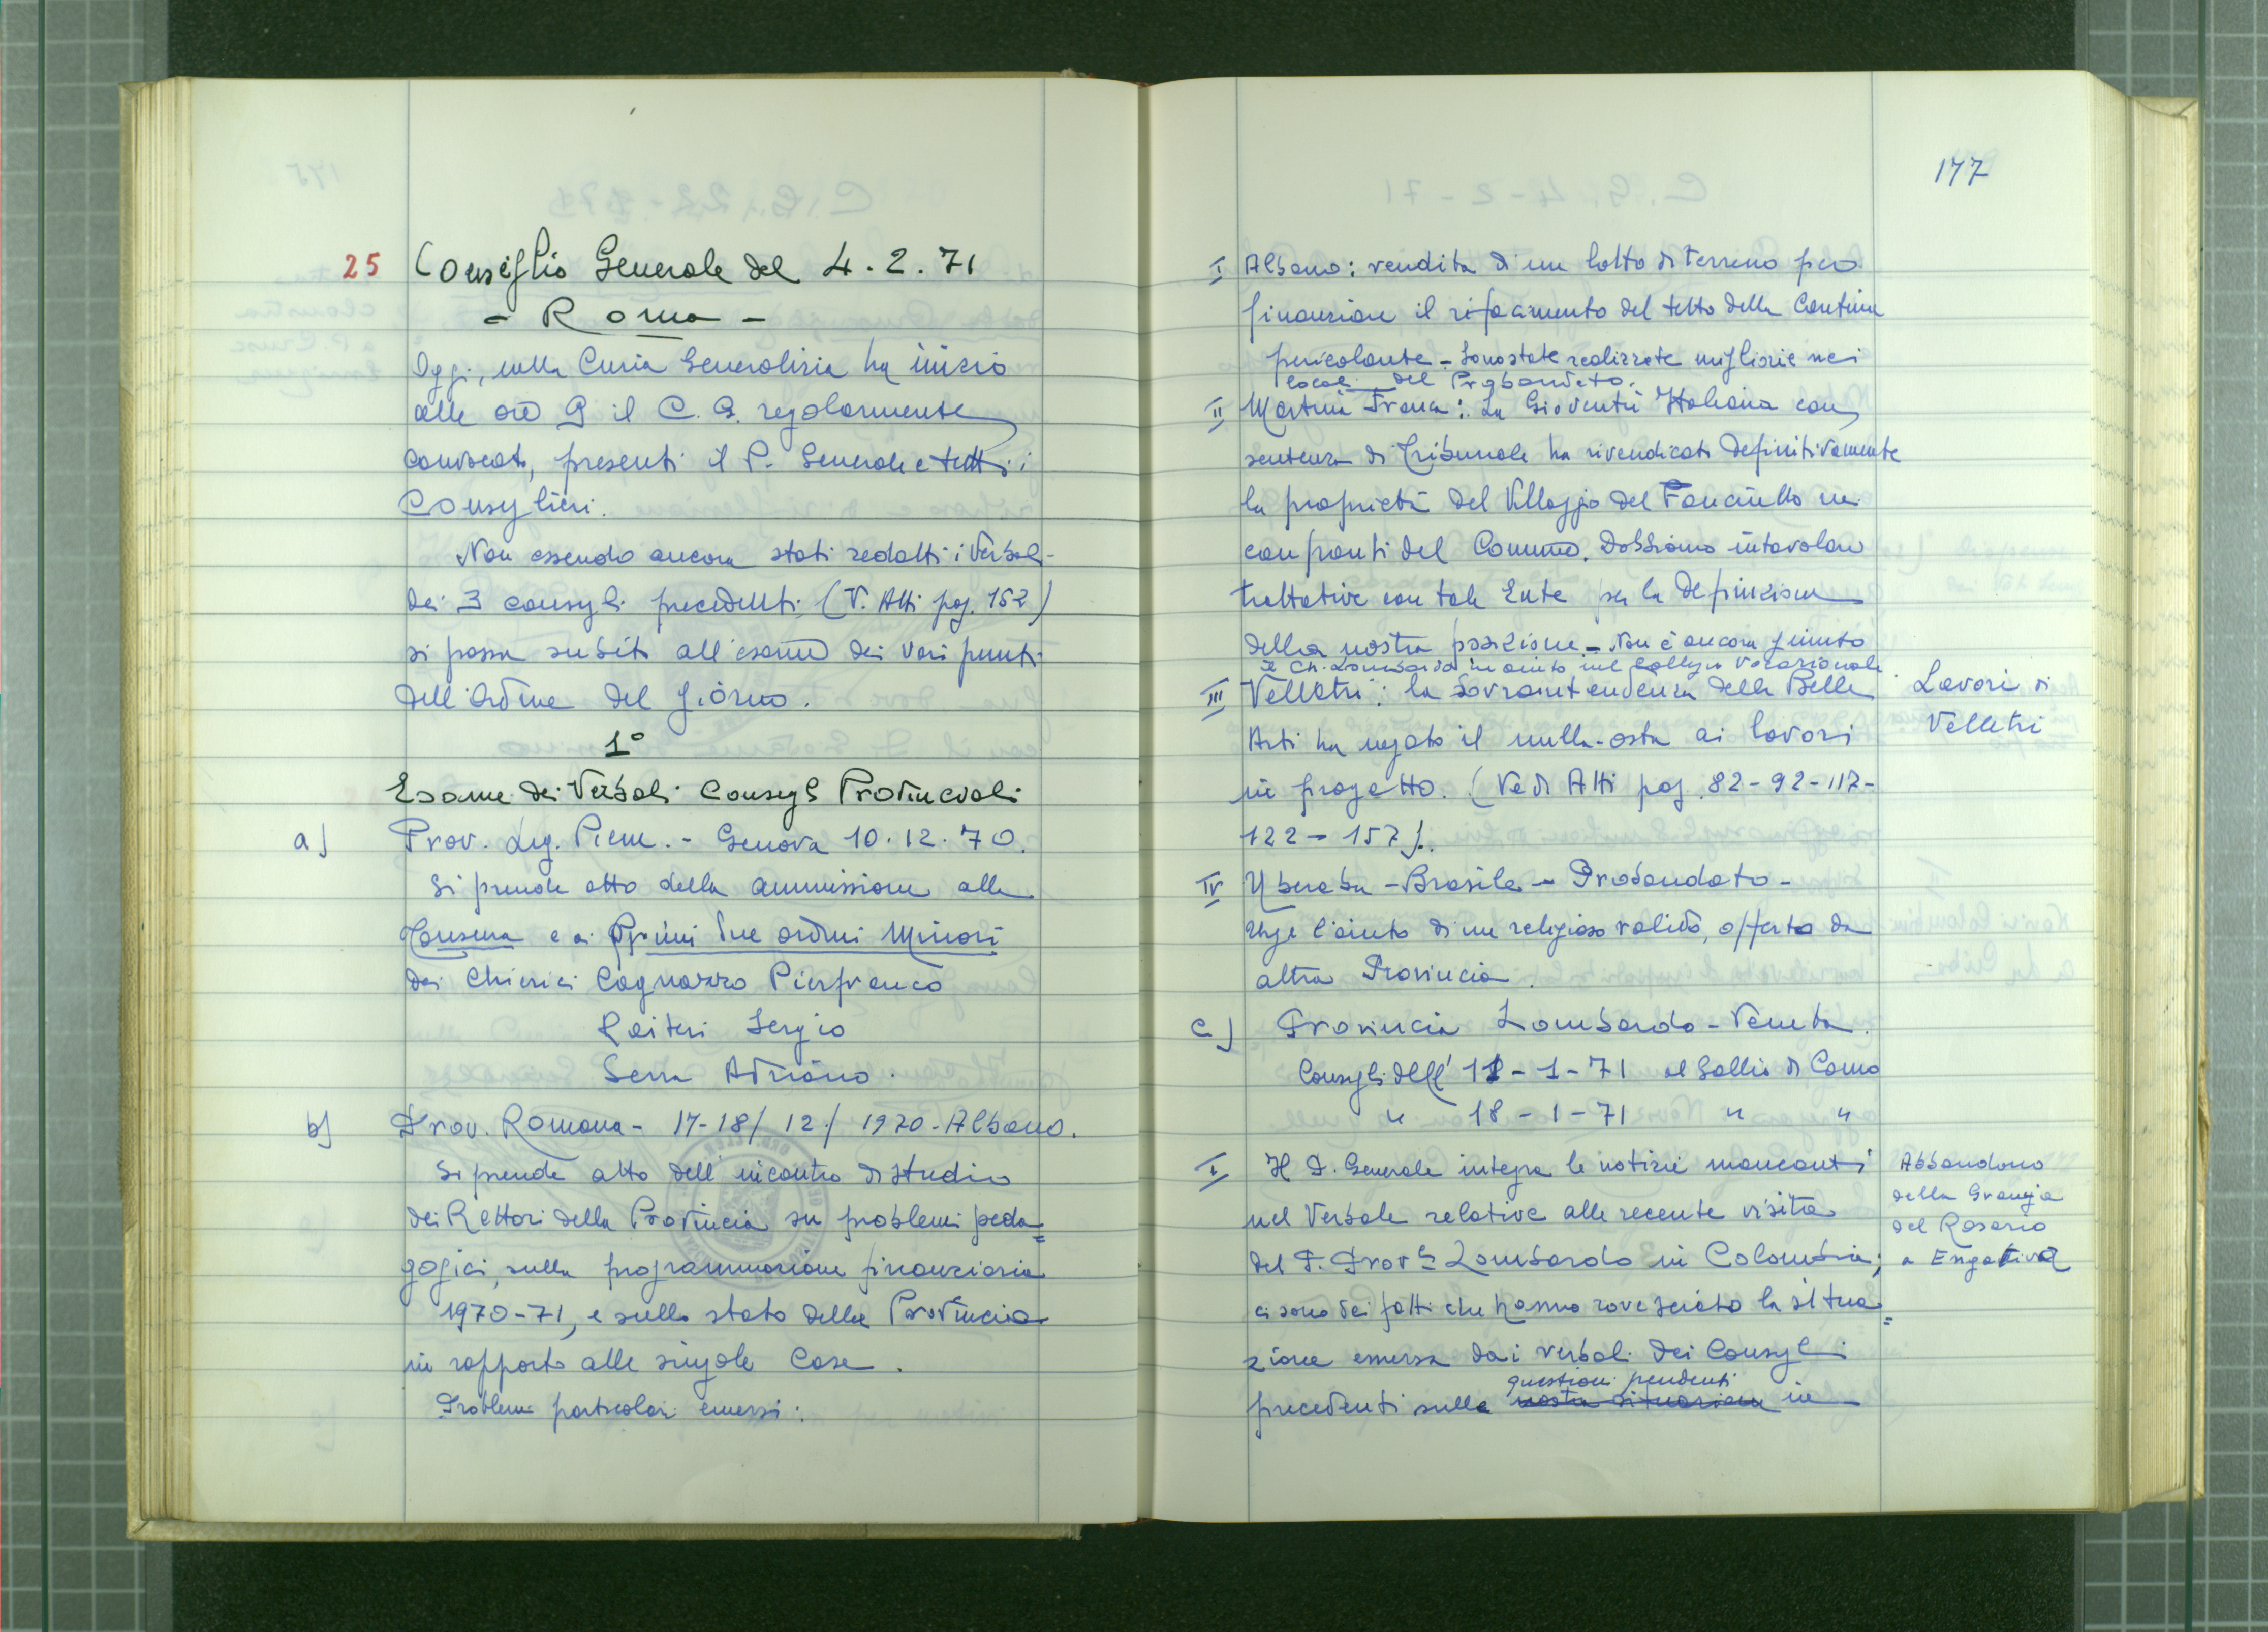 25 Consiglio Generale del 4.2.71
- Roma -
Oggi, nella Curia Generalizia ha inizio
alle ore 9 il C. G. regolarmente
convocato, presenti il P. Generale e tutti i
Consiglieri.
Non essendo ancora stati redatti i Verbali
dei 3 consigli precedenti (V. Atti pag. 152)
si passa subito all'esame dei vari punti
dell'Ordine del giorno.
1°
Esame dei Verbali Consigli Provinciali
a) Prov. Lig. Piem. - Genova 10.12.70.
Si prende atto della ammissione alla
Tonsura e ai Primi due ordini Minori
dei Chierici Cagnazzo Pierfranco
Raiteri Sergio
Serra Adriano.
b) Prov. Romana - 17-18/12/1970 - Albano.
Si prende atto dell'incontro di studio
dei Rettori della Provincia su problemi peda=
gogici, sulla programmazione finanziaria
1970-71, e sullo stato della Provincia
in rapporto alle singole Case.
Problemi particolari emersi:
177
I Albano: vendita di un lotto di terreno per
finanziare il rifacimento del tetto della Cantina
pericolante - Sono state realizzate migliorie nei
locali del Probandato.
II Martina Franca: La Gioventù Italiana con
sentenza di Tribunale ha rivendicato definitivamente
la proprietà del Villaggio del Fanciullo nei
confronti del Comune. Dobbiamo intavolare
trattative con tale Ente per la definizione
della nostra posizione - Non è ancora giunto
il Ch. Lombardo in aiuto nel Collegio Vocazionale
III Velletri: la Sovraintendenza delle Belle
Arti ha negato il nulla-osta ai lavori
in progetto. (Vedi Atti pag. 82-92-117-
122-157).
Lavori di
Velletri
IV Uberaba - Brasile - Probandato -
Urge l'aiuto di un religioso valido, offerto da
altra Provincia.
c) Provincia Lombardo-Veneta.
Consigli dell'11-1-71 al Gallio di Como
" 18-1-71 " "
I Il P. Generale integra le notizie mancanti
nel Verbale relative alla recente visita
del P. Prov.le Lombardo in Colombia;
ci sono dei fatti che hanno rovesciato la situa=
zione emersa dai verbali dei Consigli
questioni pendenti
precedenti sulle nostra situazione in
Abbandono
della Granja
del Rosario
a Engativà